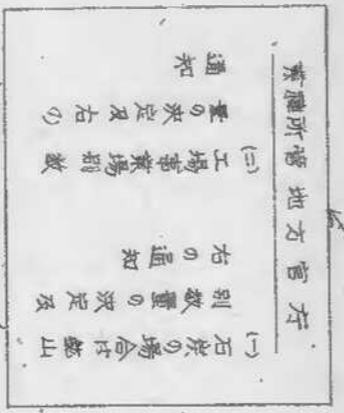 所管地方官庁
(一) 石炭の場合は鉱山
別数量の決定及
右の通知
(二) 工場事業場別数
量の決定及右の
通知